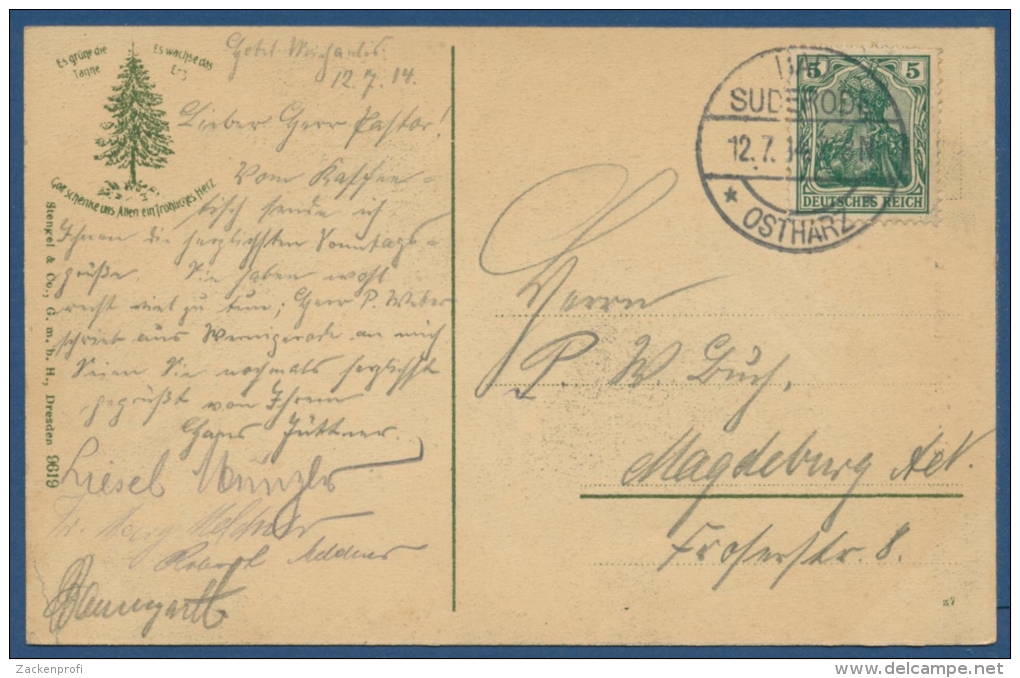 Es grüne die
Tanne
Es wachse das
Erz
Gott schenke uns Allen ein fröhliches Herz
Stengel & Co., G. m. b. H., Dresden 9619
Hotel Michaelis.
12.7.14.
Lieber Herr Pastor!
Vom Kaffee-
tisch sende ich
Ihnen die herzlichsten Sonntags-
grüße. Sie haben wohl
recht viel zu tun; Herr P. Weber
schrieb aus Wernigerode an mich
Seien Sie nochmals herzlichst
gegrüßt von Ihrem
Hans Jüttner.
Liesel
Baumgartt
BAD
SUDERODE
12.7.14
* OSTHARZ
5 5
DEUTSCHES REICH
Herrn
P. W. Buch,
Magdeburg
Froserstr. 8.
37
Zackenprofi
delcampe.net